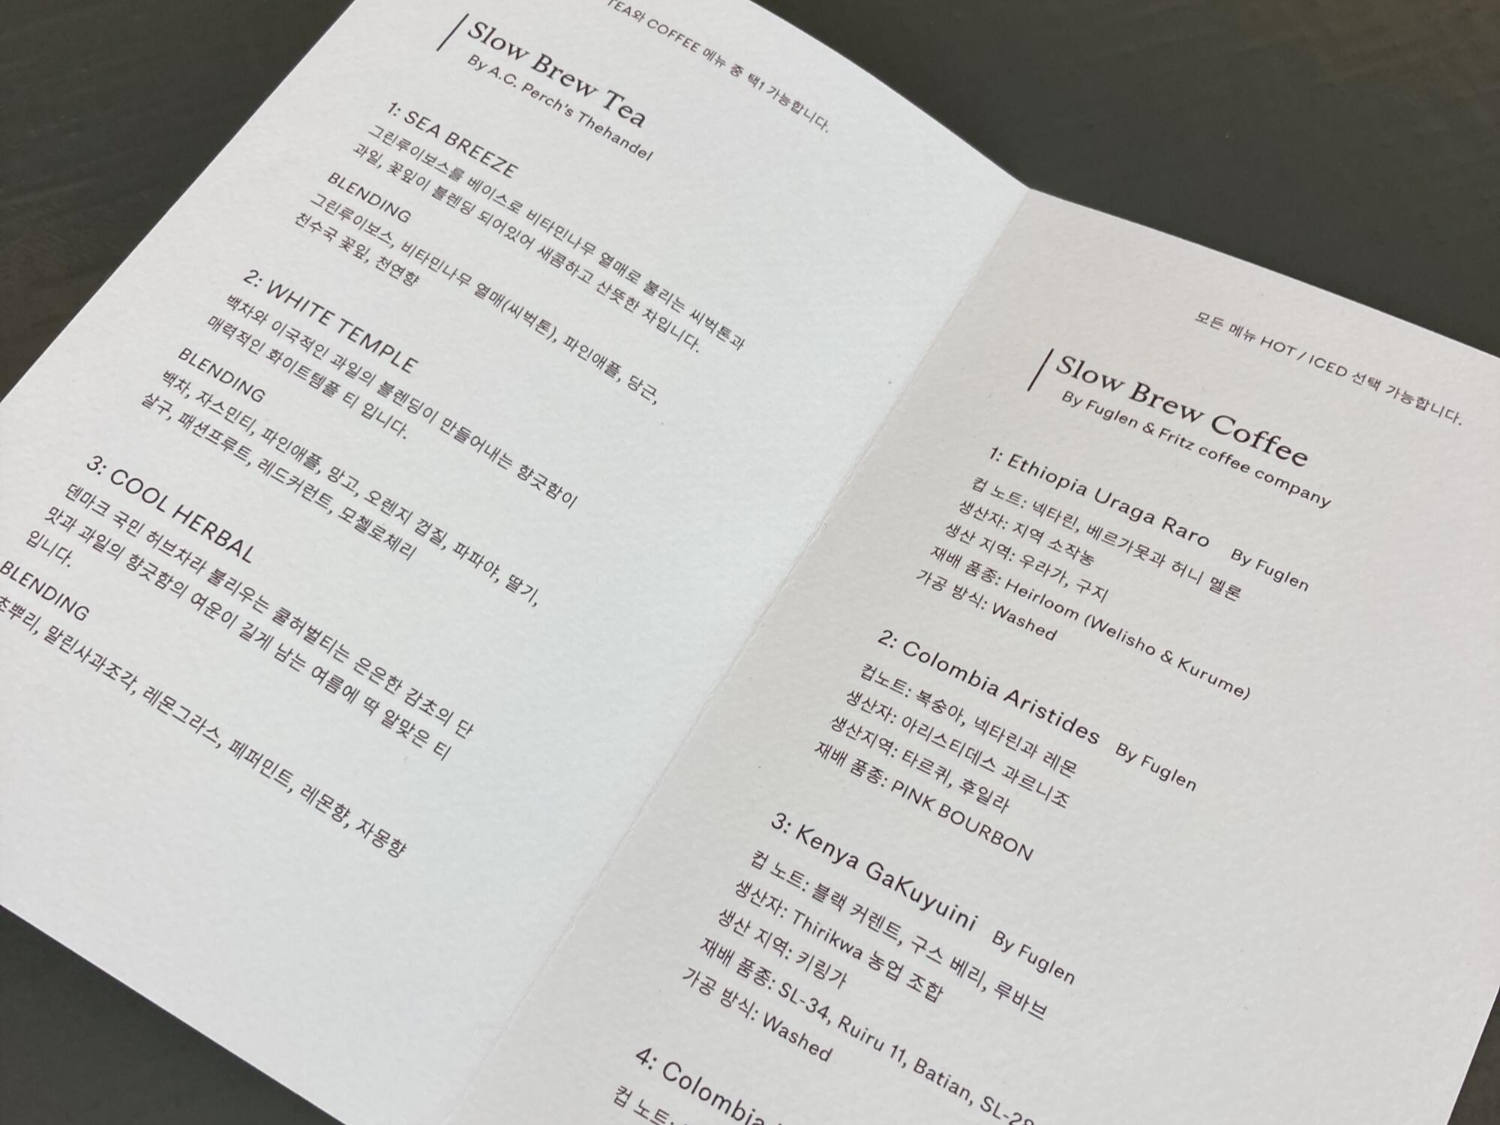 TEA와 COFFEE 메뉴 중 택1 가능합니다.
Slow Brew Tea
By A.C. Perch's Thehandel
1: SEA BREEZE
그린루이보스를 베이스로 비타민나무 열매로 불리는 씨벅톤과
과일, 꽃잎이 블렌딩 되어있어 새콤하고 산뜻한 차입니다.
BLENDING
그린루이보스, 비타민나무 열매(씨벅톤), 파인애플, 당근,
천수국 꽃잎, 천연향
2: WHITE TEMPLE
백차와 이국적인 과일의 블렌딩이 만들어내는 향긋함이
매력적인 화이트템플 티 입니다.
BLENDING
백차, 자스민티, 파인애플, 망고, 오렌지 껍질, 파파야, 딸기,
살구, 패션프루트, 레드커런트, 모첼로체리
3: COOL HERBAL
덴마크 국민 허브차라 불리우는 쿨허벌티는 은은한 감초의 단
맛과 과일의 향긋함의 여운이 길게 남는 여름에 딱 알맞은 티
입니다.
BLENDING
초뿌리, 말린사과조각, 레몬그라스, 페퍼민트, 레몬향, 자몽향
모든 메뉴 HOT / ICED 선택 가능합니다.
Slow Brew Coffee
By Fuglen & Fritz coffee company
1: Ethiopia Uraga Raro By Fuglen
컵 노트: 넥타린, 베르가못과 허니 멜론
생산자: 지역 소작농
생산 지역: 우라가, 구지
재배 품종: Heirloom (Welisho & Kurume)
가공 방식: Washed
2: Colombia Aristides By Fuglen
컵노트: 복숭아, 넥타린과 레몬
생산자: 아리스티데스 과르니조
생산지역: 타르퀴, 후일라
재배 품종: PINK BOURBON
3: Kenya GaKuyuini By Fuglen
컵 노트: 블랙 커렌트, 구스 베리, 루바브
생산자: Thirikwa 농업 조합
생산 지역: 키링가
재배 품종: SL-34, Ruiru 11, Batian, SL-28
가공 방식: Washed
4: Colombia
컵 노트: